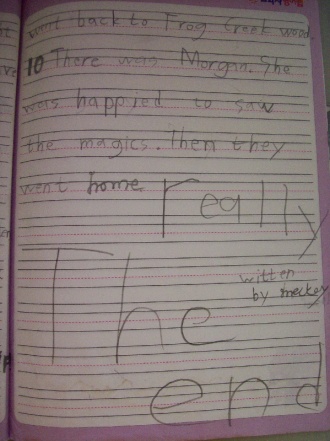 went back to Frog Creek woods
10 There was Morgan. She
was happied to saw
the magics. Then they
went home really
The
written
by meckey
end